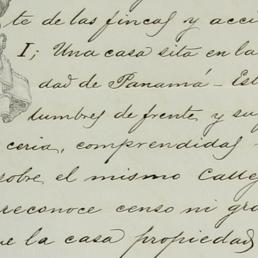 te de las fincas y acci
I; Una casa sita en la
dad de Panamá - Est
tumbres de frente y su
ceria, comprendidas
sobre el mismo Calle
reconoce censo ni gra
ue la casa propiedad